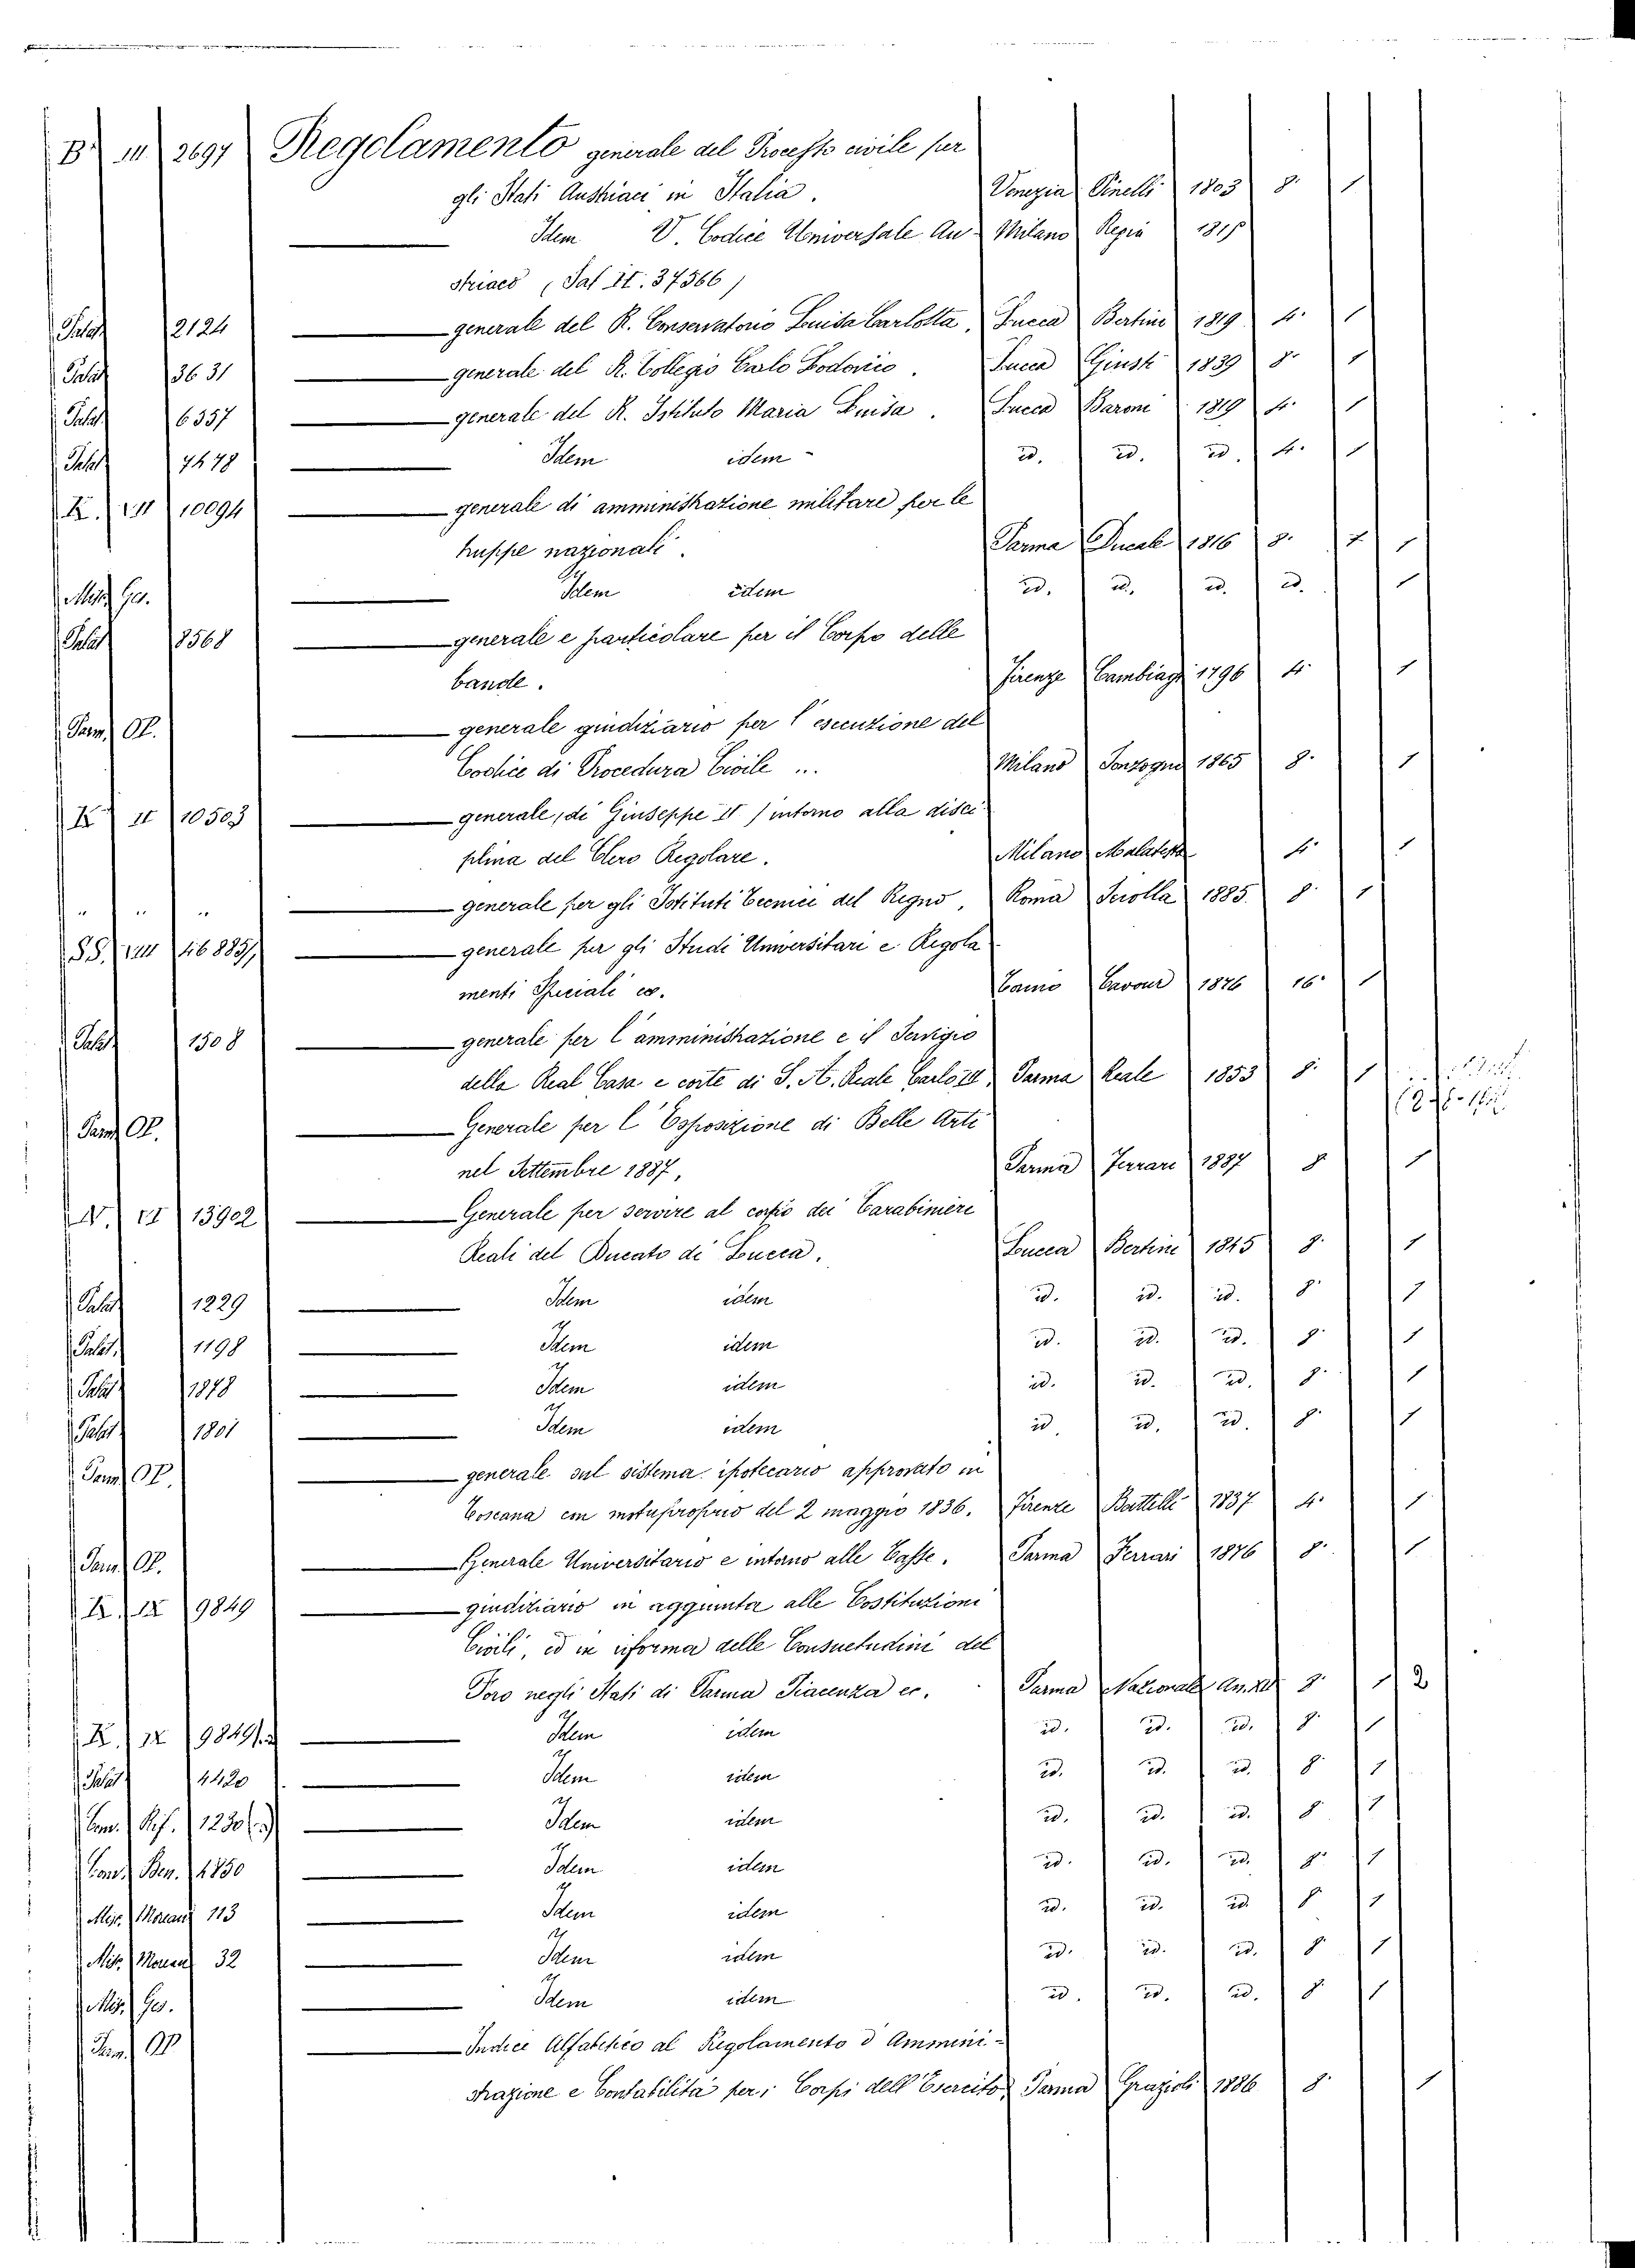 B III 2697 Regolamento generale del Processo civile per
gli Stati Austriaci in Italia. Venezia Pinelli 1803 8. 1
Idem V. Codice Universale Au- Milano Regia 1815
striaco (Sal. II. 37366)
Palat. 2124 generale del R. Conservatorio Luisa Carlotta, Lucca Bertini 1819 4. 1
Palat. 3631 generale del R. Collegio Carlo Lodovico. Lucca Giusti 1839 8. 1
Palat. 6357 generale del R. Istituto Maria Luisa. Lucca Baroni 1819 4. 1
Palat. 7478 Idem idem id. id. id. 4. 1
K. VII 10094 generale di amministrazione militare per le
truppe nazionali. Parma Ducale 1816 8. 1 1
Misc. Ger. Idem idem id. id. id. id. 1
Palat. 8568 generale e particolare per il Corpo delle
bande. Firenze Cambiagi 1796 4. 1
Parm. OP. generale giudiziario per l'esecuzione del
Codice di Procedura Civile ... Milano Sonzogno 1865 8. 1
K II 10503 generale, di Giuseppe II / intorno alla disci-
plina del Clero Regolare. Milano Malatesta 4. 1
" " " generale per gli Istituti Tecnici del Regno, Roma Scrolla 1885. 8. 1
SS. VIII 46883/1 generale per gli Studi Universitari e Regola
menti Speciali ec. Camerino Cavour 1876 16. 1
Palat. 1508 generale per l'amministrazione e il Servigio
della Real Casa e corte di S. A. Reale Carlo III, Parma Reale 1853 8. 1
Parm. OP. Generale per l'Esposizione di Belle Arti
nel Settembre 1887, Parma Ferrari 1887 8 1
N. VI 13902 Generale per servire al corpo dei Carabinieri
Reali del Ducato di Lucca. Lucca Bertini 1845 8. 1
Palat. 1229 Idem idem id. id. id. 8. 1
Palat. 1198 Idem idem id. id. id. 8. 1
Palat. 1878 Idem idem id. id. id. 8. 1
Palat. 1801 Idem idem id. id. id. 8. 1
Parm. OP. generale sul sistema ipotecario approvato in
Toscana con motuproprio del 2 maggio 1836. Firenze Battelli 1837 4. 1
Parm. OP. Generale Universitario e intorno alle Tasse. Parma Ferrari 1876 8. 1
K. IX 9849 giudiziario in aggiunta alle Costituzioni
Civili, ed in riforma delle Consuetudini del
Foro negli Stati di Parma Piacenza ec. Parma Nazionale An. XII 8. 1 2
K. IX 9849/2 Idem idem id. id. id. 8. 1
Palat. 4420 Idem idem id. id. id. 8. 1
Com. Rif. 1230 Idem idem id. id. id. 8. 1
Cons. Ben. 4850 Idem idem id. id. id. 8. 1
Misc. Moreau 113 Idem idem id. id. id. 8 1
Misc. Moreau 32 Idem idem id. id. id. 8. 1
Misc. Ger. Idem idem id. id. id. 8 1
Parm. OP Indice Alfabetico al Regolamento d'Ammini-
strazione e Contabilità per i Corpi dell'Esercito, Parma Grazioli 1886 8. 1